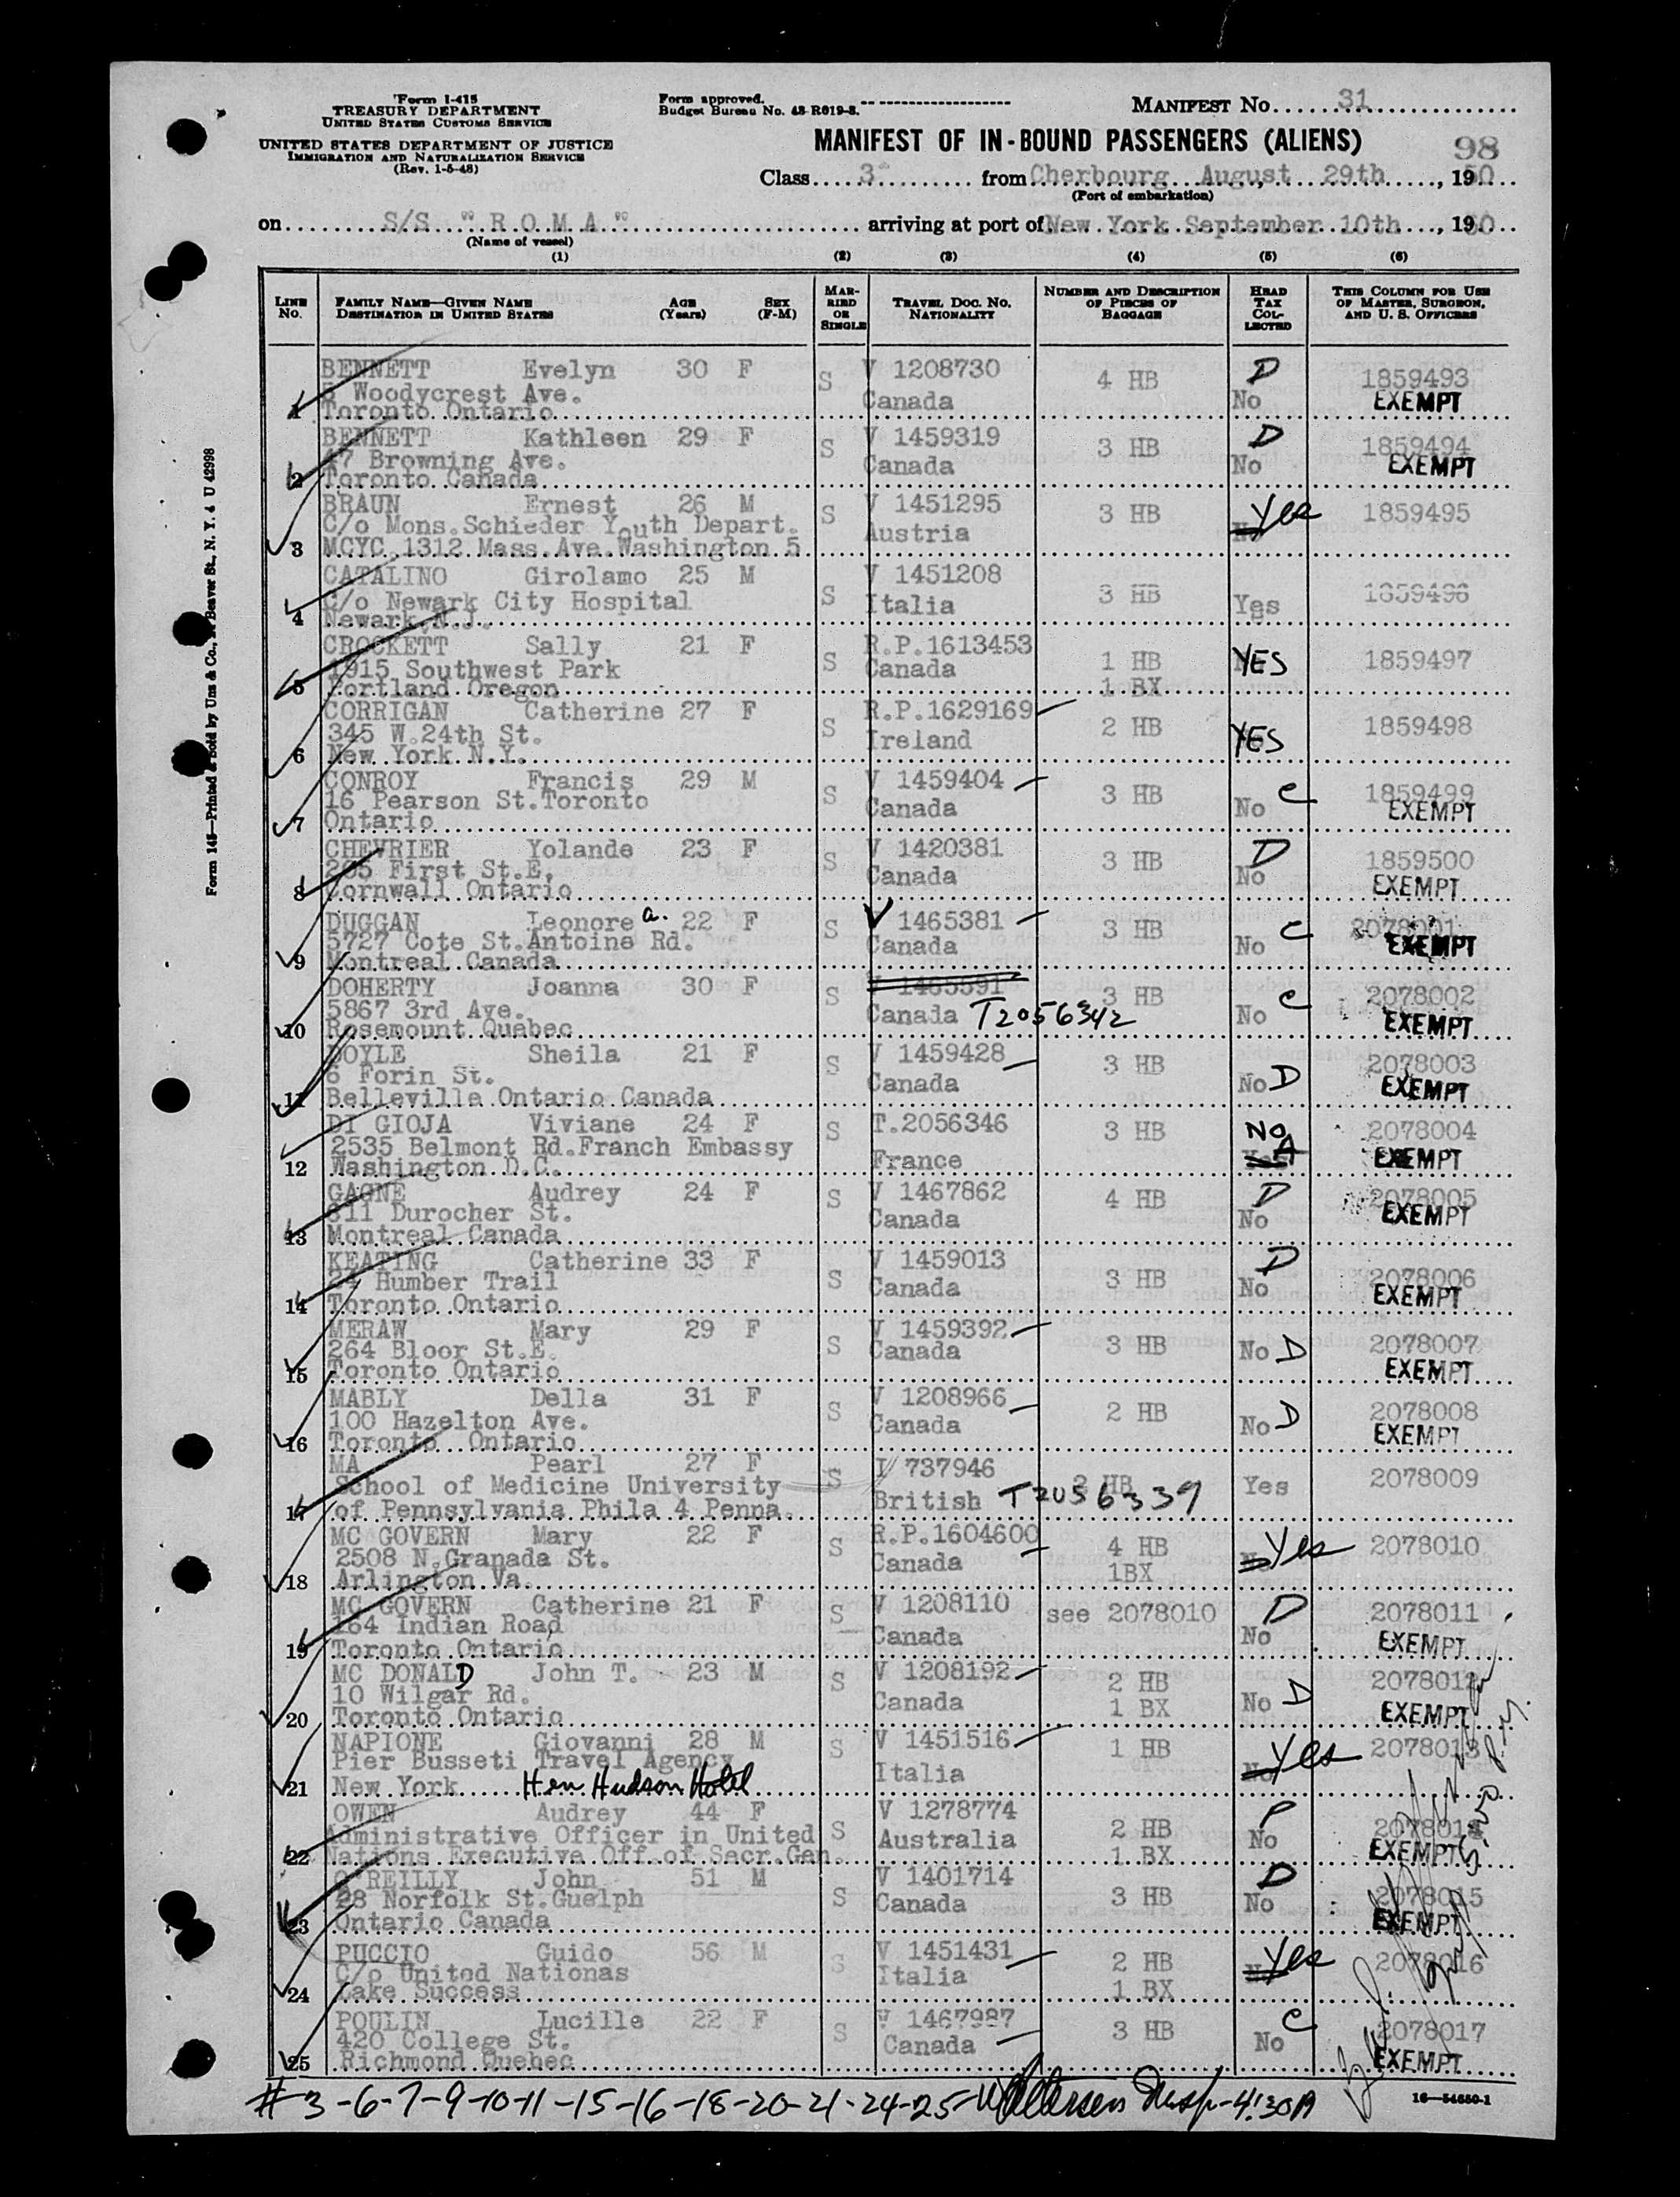 Form I-415
TREASURY DEPARTMENT
UNITED STATES CUSTOMS SERVICE
UNITED STATES DEPARTMENT OF JUSTICE
IMMIGRATION AND NATURALIZATION SERVICE
(Rev. 1-5-48)
Form approved.
Budget Bureau No. 43-R019-3.
MANIFEST NO. 31
MANIFEST OF IN-BOUND PASSENGERS (ALIENS)
98
Class 3ª from Cherbourg August, 29th, 1950
(Port of embarkation)
on S/S "R O M A" arriving at port of New York September 10th, 1950
(Name of vessel)
(1) (2) (3) (4) (5) (6)
LINE NO. FAMILY NAME—GIVEN NAME DESTINATION IN UNITED STATES AGE (Years) SEX (F-M) MARRIED OR SINGLE TRAVEL DOC. NO. NATIONALITY NUMBER AND DESCRIPTION OF PIECES OF BAGGAGE HEAD TAX COLLECTED THIS COLUMN FOR USE OF MASTER, SURGEON, AND U. S. OFFICERS
BENNETT Evelyn 30 F S V 1208730 4 HB D 1859493
5 Woodycrest Ave.
1 Toronto Ontario Canada No EXEMPT
BENNETT Kathleen 29 F S V 1459319 3 HB D 1859494
47 Browning Ave.
2 Toronto Canada Canada No EXEMPT
BRAUN Ernest 26 M S V 1451295 3 HB Yes 1859495
C/o Mons.Schieder Youth Depart. Austria No
3 MCYC 1312 Mass.Ave.Washington 5
CATALINO Girolamo 25 M S V 1451208 3 HB Yes 1859496
C/o Newark City Hospital Italia
4 Newark N.J.
CROCKETT Sally 21 F S R.P.1613453 1 HB YES 1859497
1915 Southwest Park Canada
5 Portland Oregon 1 BX
CORRIGAN Catherine 27 F S R.P.1629169 2 HB YES 1859498
345 W.24th St. Ireland
6 New York N.Y.
CONROY Francis 29 M S V 1459404 3 HB No C 1859499
16 Pearson St.Toronto Canada EXEMPT
7 Ontario
CHEVRIER Yolande 23 F S V 1420381 3 HB D 1859500
205 First St.E. Canada No EXEMPT
8 Cornwall Ontario
DUGGAN Leonore a. 22 F S V 1465381 3 HB C 2078001
5727 Cote St.Antoine Rd. Canada No EXEMPT
9 Montreal Canada
DOHERTY Joanna 30 F S V 1465591 3 HB C 2078002
5867 3rd Ave. Canada T2056342 No EXEMPT
10 Rosemount Quebec
DOYLE Sheila 21 F S V 1459428 3 HB 2078003
6 Forin St. Canada No D EXEMPT
11 Belleville Ontario Canada
DI GIOJA Viviane 24 F S T.2056346 3 HB NO 2078004
2535 Belmont Rd.Franch Embassy A
12 Washington D.C. France Yes EXEMPT
GAGNE Audrey 24 F S V 1467862 4 HB D 2078005
811 Durocher St. Canada No EXEMPT
13 Montreal Canada
KEATING Catherine 33 F S V 1459013 3 HB D 2078006
24 Humber Trail Canada No EXEMPT
14 Toronto Ontario
MERAW Mary 29 F S V 1459392 3 HB No D 2078007
264 Bloor St.E. Canada EXEMPT
15 Toronto Ontario
MABLY Della 31 F S V 1208966 2 HB No D 2078008
100 Hazelton Ave. Canada EXEMPT
16 Toronto Ontario
MA Pearl 27 F S I 737946 2 HB Yes 2078009
School of Medicine University British T2056339
17 of Pennsylvania Phila 4 Penna.
MC GOVERN Mary 22 F S R.P.1604600 4 HB Yes 2078010
2508 N.Granada St. Canada 1BX No
18 Arlington Va.
MC GOVERN Catherine 21 F S V 1208110 see 2078010 D 2078011
164 Indian Road Canada No EXEMPT
19 Toronto Ontario
MC DONALD John T. 23 M S V 1208192 2 HB No D 2078012
10 Wilgar Rd. Canada 1 BX EXEMPT
20 Toronto Ontario
NAPIONE Giovanni 28 M S V 1451516 1 HB Yes 2078013
Pier Busseti Travel Agency Italia No
21 New York Hen Hudson Hotel
OWEN Audrey 44 F S V 1278774 2 HB P 2078014
Administrative Officer in United Australia No EXEMPT
22 Nations Executive Off.of Secr.Gen. 1 BX
O'REILLY John 51 M S V 1401714 3 HB D 2078015
28 Norfolk St.Guelph Canada No EXEMPT
23 Ontario Canada
PUCCIO Guido 56 M S V 1451431 2 HB Yes 2078016
C/o United Nationas Italia
24 Lake Success 1 BX
POULIN Lucille 22 F S V 1467987 3 HB C 2078017
420 College St. Canada No EXEMPT
25 Richmond Quebec
#3-6-7-9-10-11-15-16-18-20-21-24-25- Insp-4:30A
16—54650-1
Form 145—Printed & Sold by Unz & Co., Beaver St., N. Y. 4 U 42998